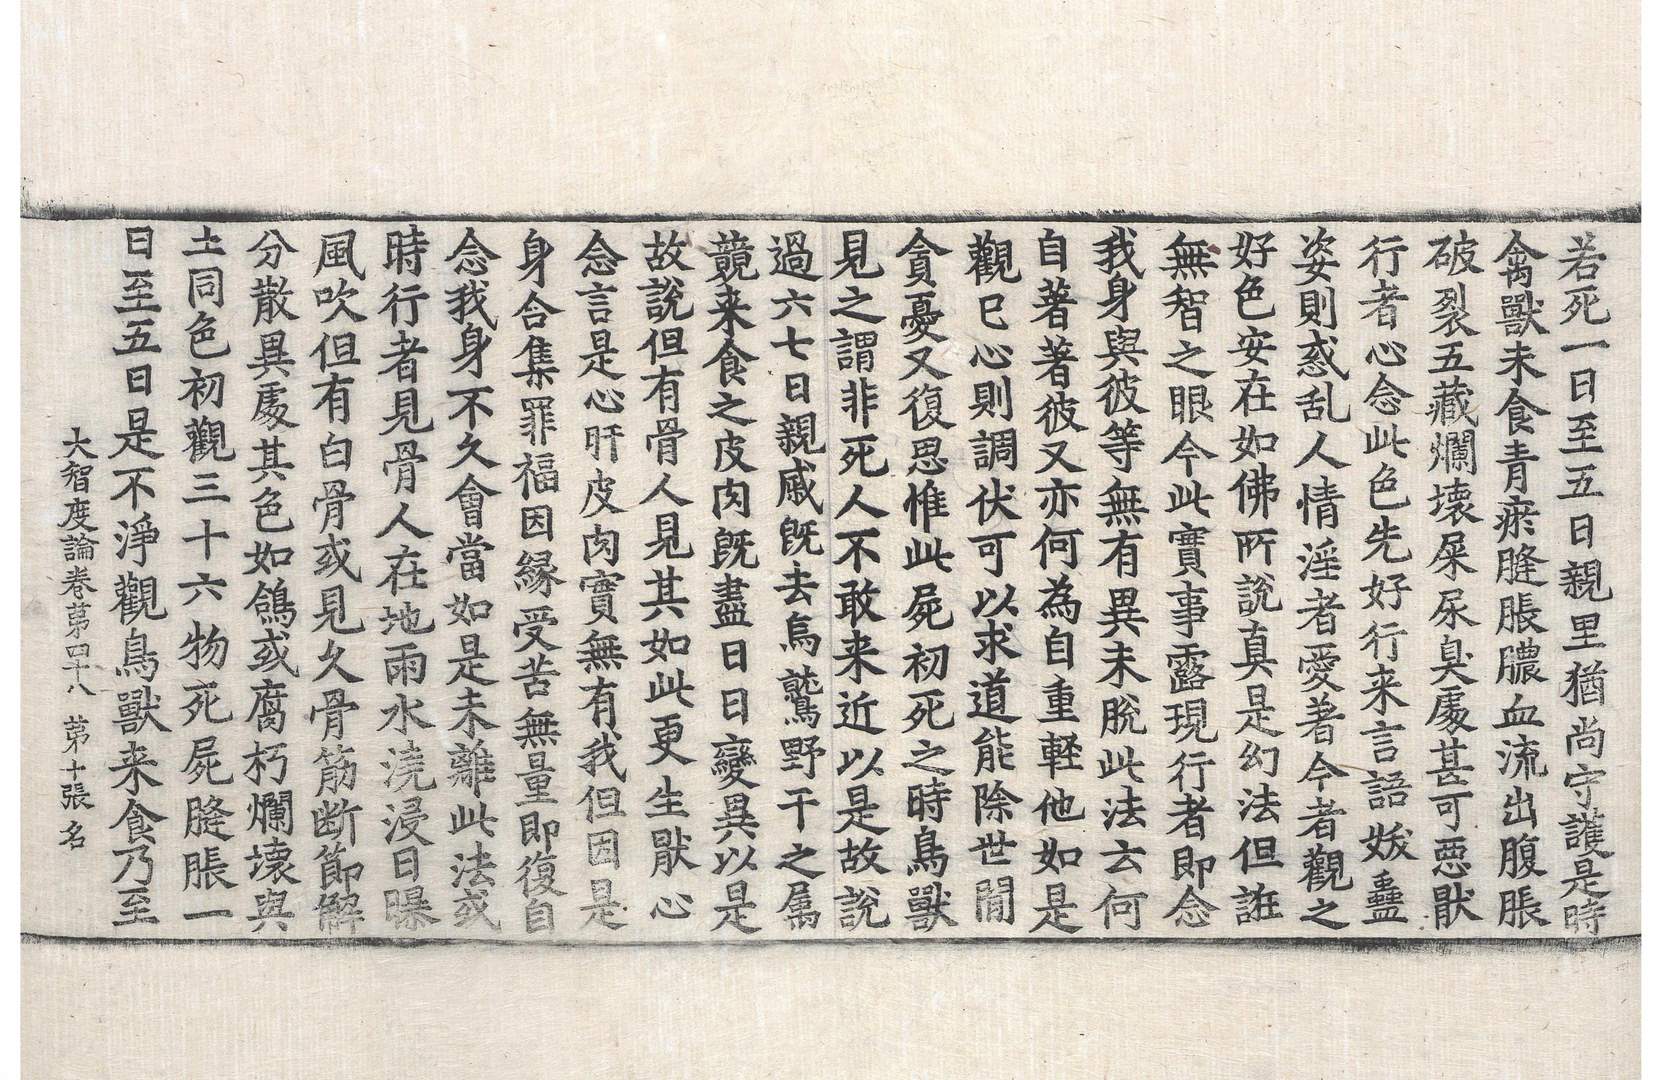 若死一日至五日親里猶尚守護是時
禽獸未食青瘀膖脹膿血流出腹脹
破裂五藏爛壞屎尿臭處甚可惡猒
行者心念此色先好行来言語妖蠱
姿則惑乱人情淫者愛著今者觀之
好色安在如佛所說真是幻法但誑
無智之眼今此實事露現行者即念
我身與彼等無有異未脫此法云何
自著著彼又亦何為自重軽他如是
觀已心則調伏可以求道能除世間
貪憂又復思惟此屍初死之時鳥獸
見之謂非死人不敢来近以是故說
過六七日親戚旣去烏鷲野干之屬
競来食之皮肉旣盡日日變異以是
故說但有骨人見其如此更生猒心
念言是心肝皮肉實無有我但因是
身合集罪福因緣受苦無量即復自
念我身不久會當如是未離此法或
時行者見骨人在地雨水澆浸日曝
風吹但有白骨或見久骨筋断節解
分散異處其色如鴿或腐朽爛壞與
土同色初觀三十六物死屍膖脹一
日至五日是不淨觀鳥獸来食乃至
大智度論卷苐四十八 苐十張 名